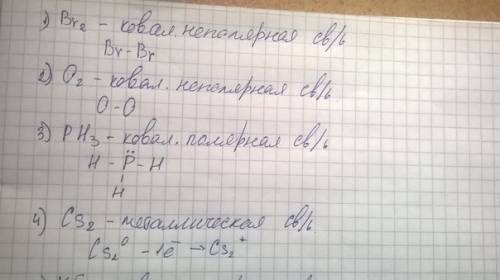 1) Br₂ – ковал. неполярная св/ь
Br – Br
2) O₂ – ковал. неполярная св/ь.
O – O
3) PH₃ – ковал. полярная св/ь
H – P̈ – H
H
4) Cs₂ – металлическая св/ь
Cs₂⁰ – 1ē → Cs₂⁺